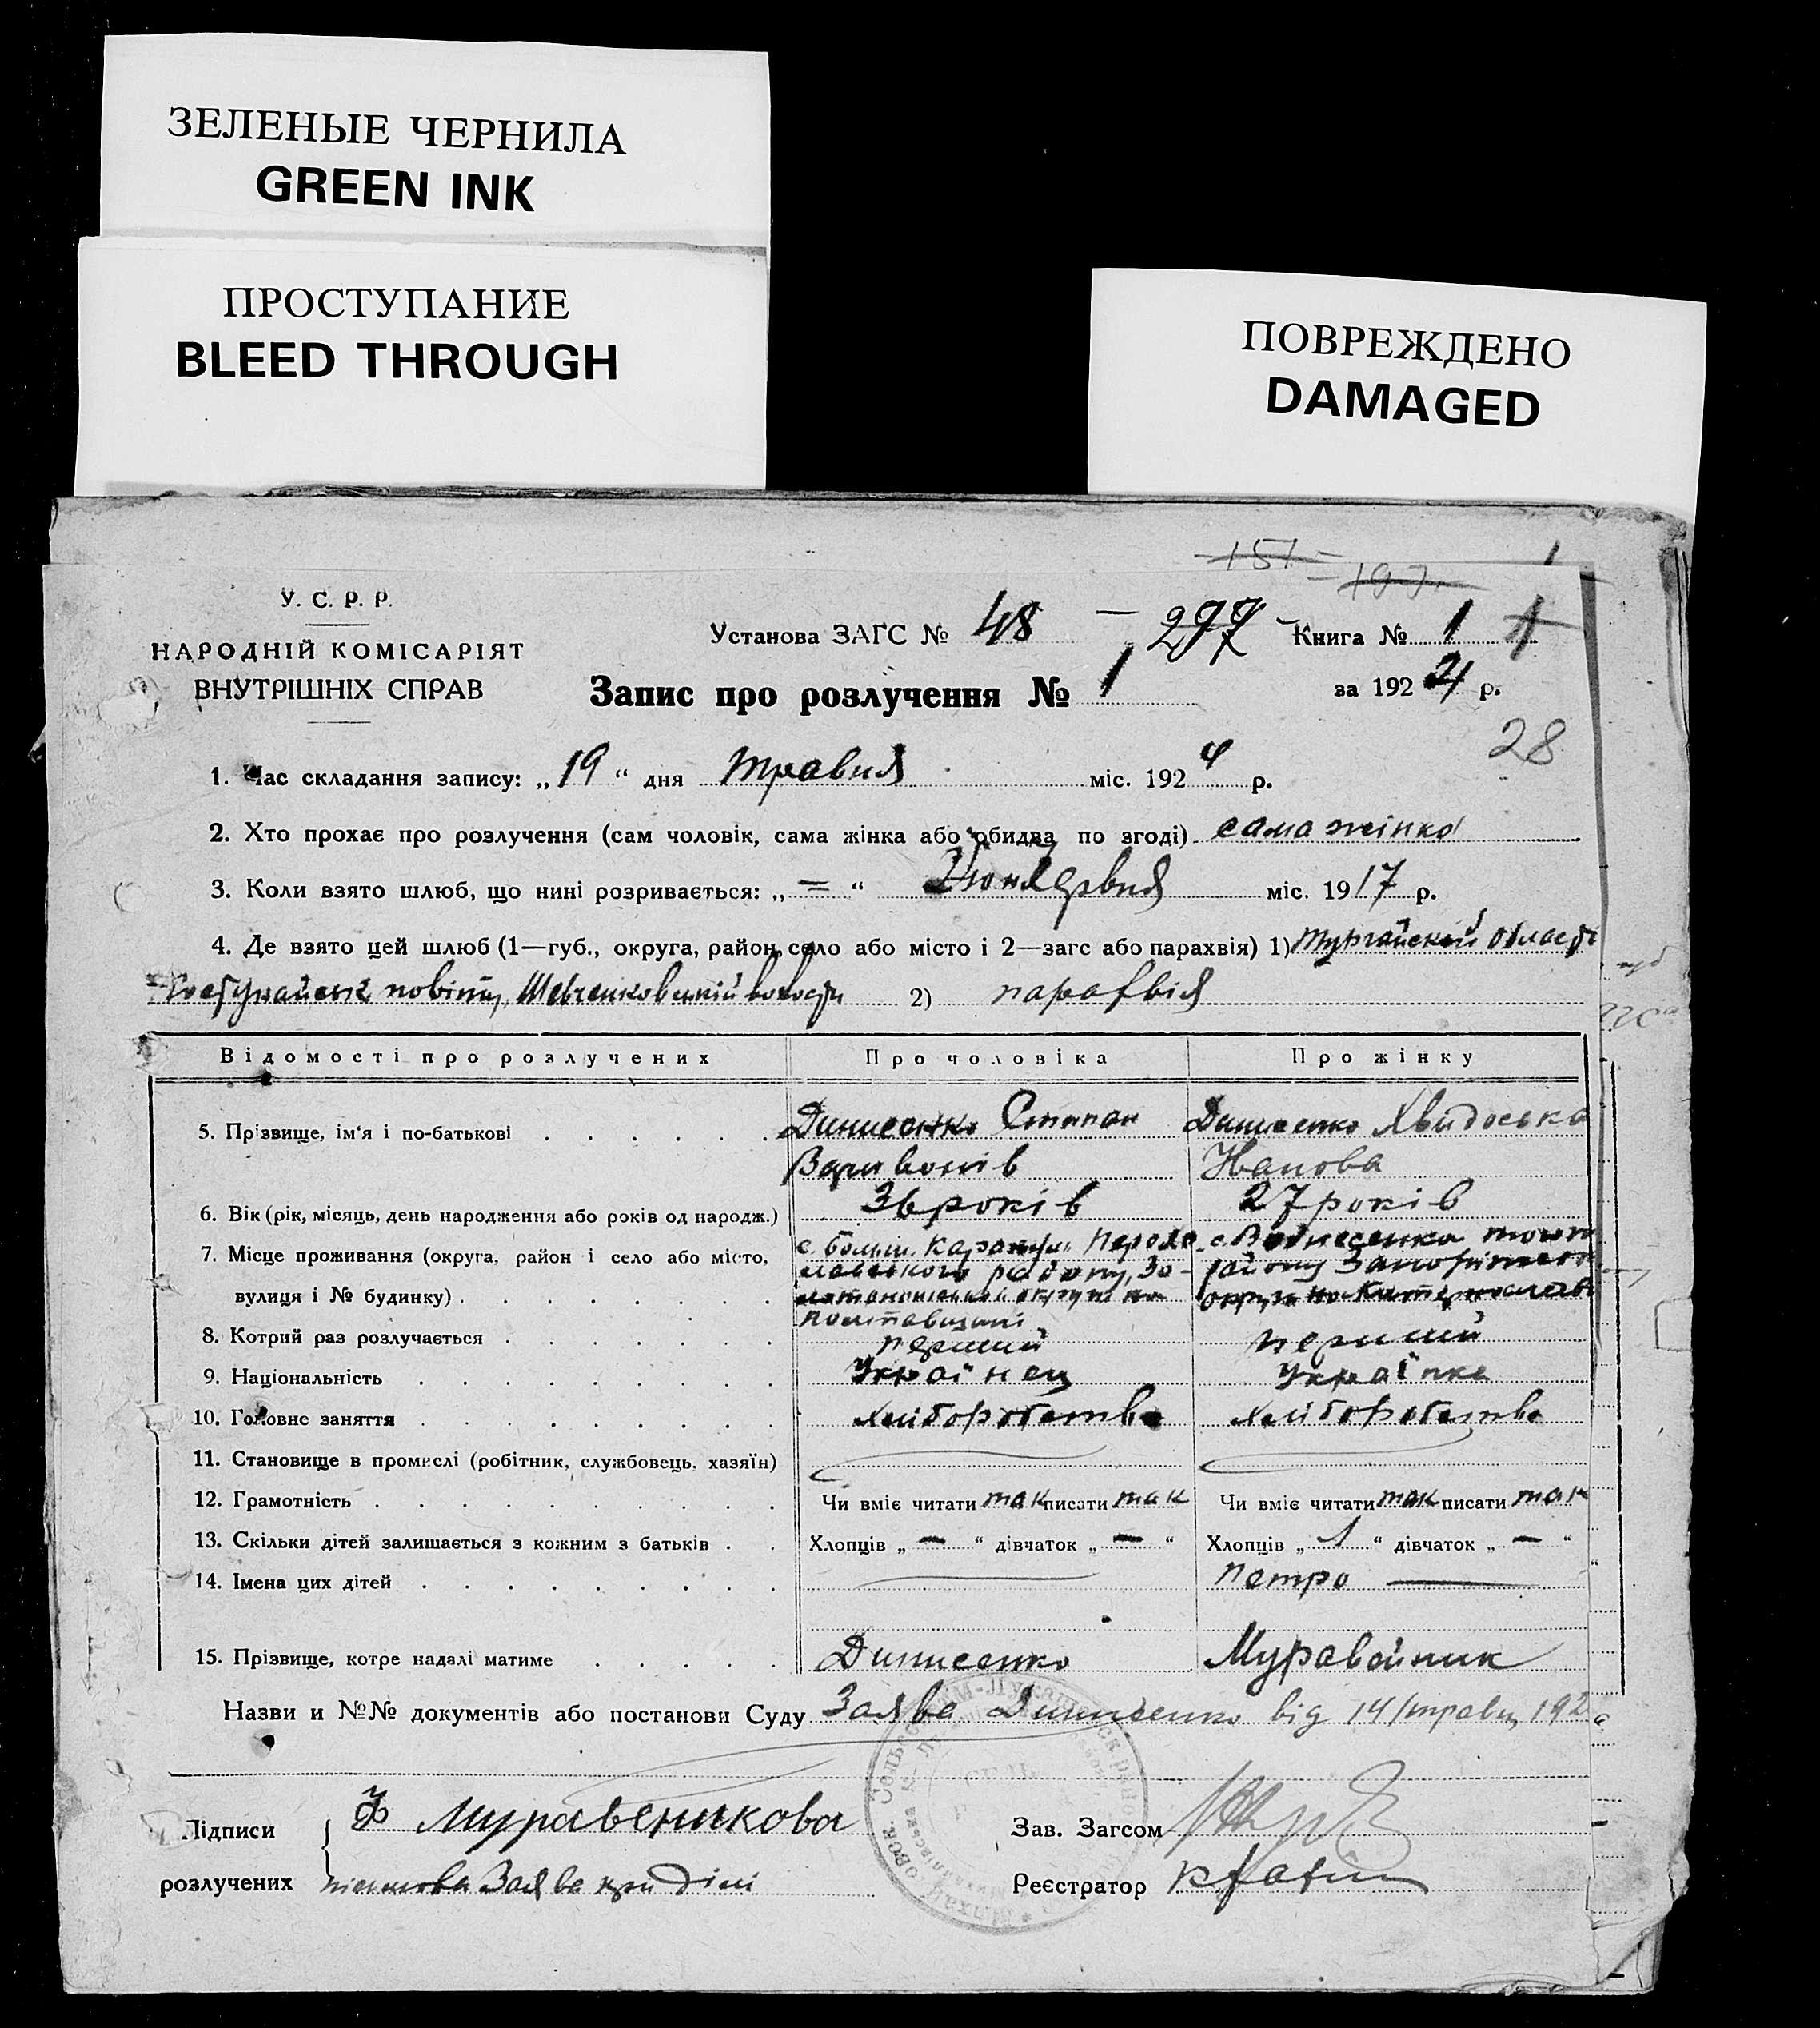 ЗЕЛЕНЫЕ ЧЕРНИЛА
GREEN INK
ПРОСТУПАНИЕ
BLEED THROUGH
ПОВРЕЖДЕНО
DAMAGED
151
197
У. С. Р. Р.
НАРОДНІЙ КОМІСАРІЯТ
ВНУТРІШНІХ СПРАВ
Установа ЗАГС № 48 – 297 – Книга № 1 1
Запис про розлучення № 1 за 1924 р.
28
1. Час складання запису: „19“ дня травня міс. 1924 р.
2. Хто прохає про розлучення (сам чоловік, сама жінка або обидва по згоді) сама жінка
3. Коли взято шлюб, що нині розривається: „ = “ міс. 1917 р.
4. Де взято цей шлюб (1—губ., округа, район, село або місто і 2—загс або парахвія) 1) Тургайской області
повіту, Шевченковській волости 2) парафвія
Відомості про розлучених Про чоловіка Про жінку
5. Прізвище, ім‘я і по-батькові Динисенко Степан Динисенко Хвидоська
Іванова
6. Вік (рік, місяць, день народження або років од народж.) 36 років 27 років
7. Місце проживання (округа, район і село або місто, вулиця і № будинку) с. Больш. Каратул Переяславського району, Золотоношської округи на Полтавщині с. Вознесенка району округи на Катеринославщ
8. Котрий раз розлучається перший перший
9. Національність Українец Українка
10. Головне заняття хліборобство хліборобство
11. Становище в промислі (робітник, службовець, хазяїн)
12. Грамотність Чи вміє читати так писати так Чи вміє читати так писати так
13. Скільки дітей залишається з кожним з батьків Хлопців „ — “ дівчаток „ — “ Хлопців „ 1 “ дівчаток „ — “
14. Імена цих дітей Петро
15. Прізвище, котре надалі матиме Динисенко Муравойник
Назви и №№ документів або постанови Суду Заява Динисенко від 14/травн 192
Підписи Ф Муравеникова Зав. Загсом
розлучених Заява при ділі Реєстратор